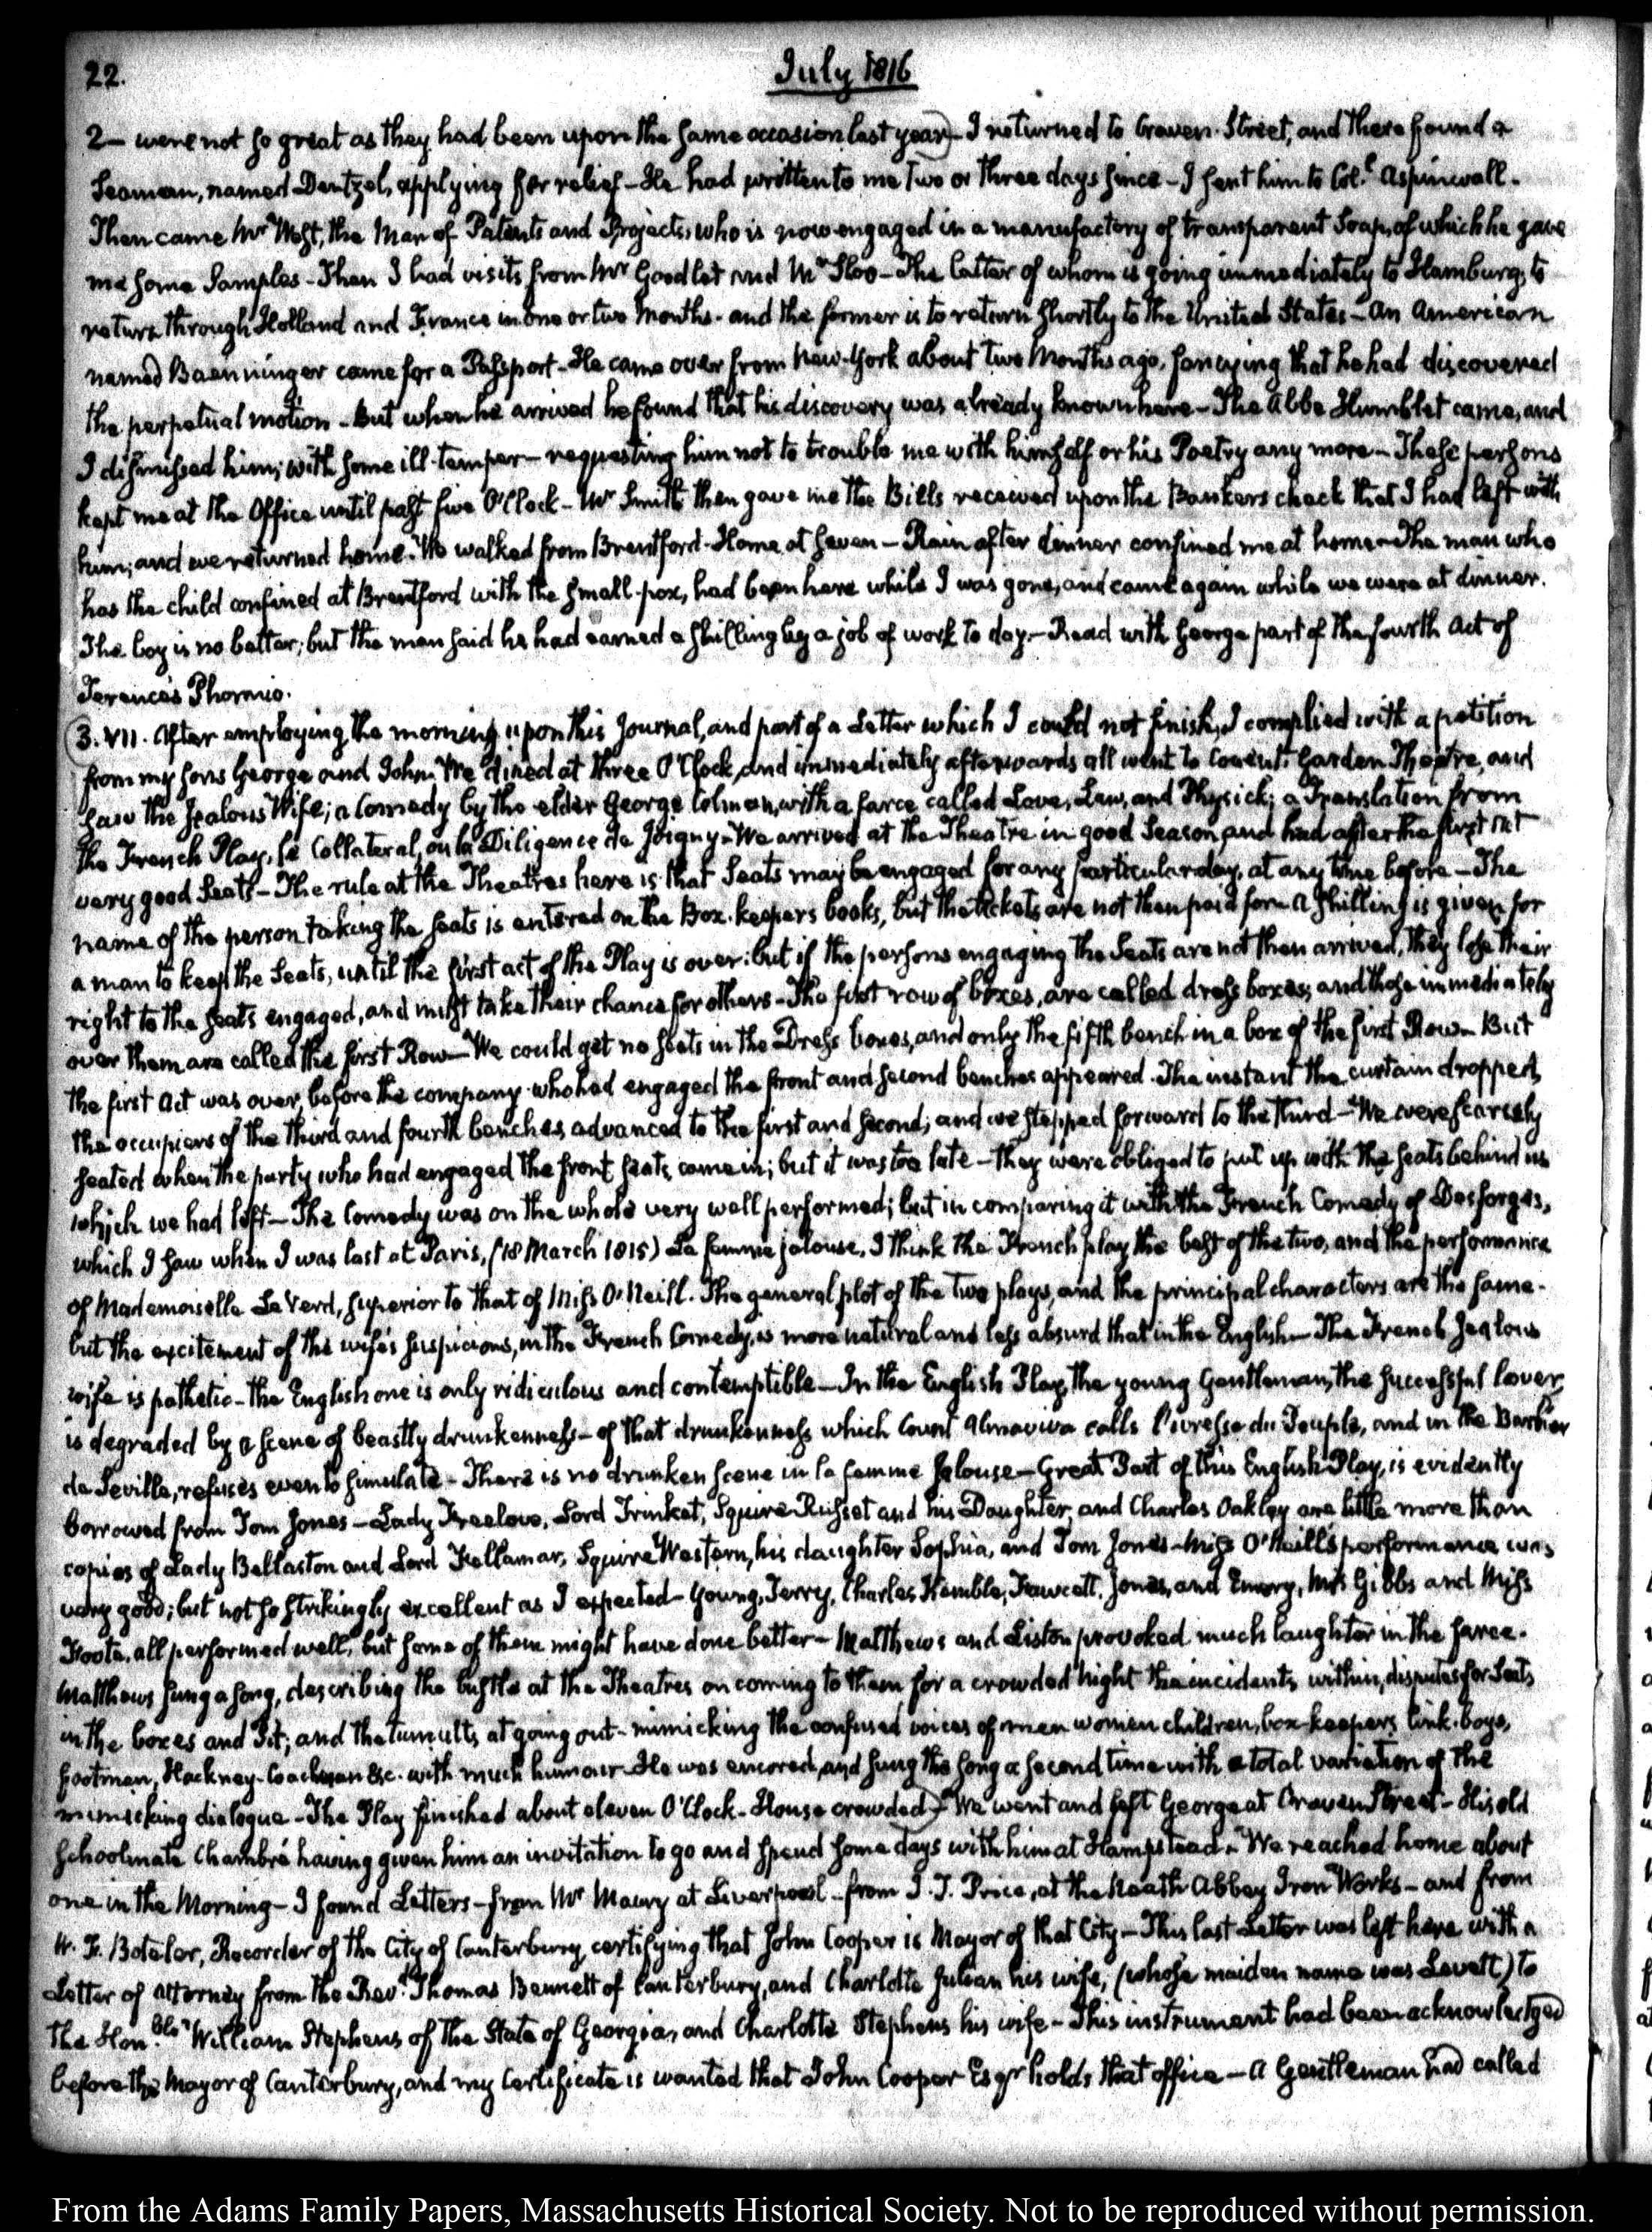 22.
July 1816
2— were not so great as they had been upon the same occasion last year)— I returned to Craven-Street, and there found a
Seaman, named Dentzel, applying for relief— He had written to me two or three days since— I sent him to Col.l Aspinwall.
Then came Mr West, the Man of Patents and Projects, who is now engaged in a manufactory of transparent Soap, of which he gave
me some Samples— Then I had visits from Mr Goodlet and Mr Sloo— The latter of whom is going immediately to Hamburg; to
return through Holland and France in one or two Months— and the former is to return shortly to the United States— An American
named Baenninger came for a Passport— He came over from New-York about two Months ago, fancying that he had discovered
the perpetual motion— But when he arrived he found that his discovery was already known here— The Abbe Humblet came, and
I dismissed him; with some ill-temper— requesting him not to trouble me with himself or his Poetry any more— These persons
kept me at the Office until past five O'Clock— Mr Smith then gave me the Bills received upon the Bankers check that I had left with
him; and we returned home. We walked from Brentford— Home at seven— Rain after dinner confined me at home— The man who
has the child confined at Brentford with the small-pox, had been here while I was gone, and came again while we were at dinner.
The boy is no better; but the man said he had earned a shilling by a job of work to day.— Read with George part of the fourth Act of
Terence's Phormio.
3. VII. After employing the morning upon this Journal, and part of a Letter which I could not finish, I complied with a petition
from my Sons George and John. We dined at three O'Clock, and immediately afterwards all went to Covent-Garden Theatre, and
saw the Jealous Wife; a Comedy by the elder George Colman, with a farce called Love, Law, and Physick; a Translation from
the French Play, le Collateral, ou la Diligence de Joigny— We arrived at the Theatre in good Season, and had after the first Act
very good Seats— The rule at the Theatres here is that Seats may be engaged for any particular day, at any time before— The
name of the person taking the seats is entered on the Box-keepers books, but the tickets are not then paid for— A shilling is given for
a man to keep the Seats, until the first act of the Play is over: but if the persons engaging the Seats are not then arrived, they lose their
right to the seats engaged, and must take their chance for others— The first row of boxes, are called dress boxes; and those immediately
over them are called the first Row— We could get no seats in the Dress boxes, and only the fifth bench in a box of the first Row— But
the first Act was over, before the company who had engaged the front and second benches appeared. The instant the curtain dropped,
the occupiers of the third and fourth benches, advanced to the first and second; and we stepped forward to the third— We were scarcely
seated when the party who had engaged the front seats came in; but it was too late— they were obliged to put up with the seats behind us
which we had left— The Comedy was on the whole very well performed; but in comparing it with the French Comedy of Desforges,
which I saw when I was last at Paris, (18 March 1815) La femme jalouse, I think the French play the best of the two, and the performance
of Mademoiselle Le Verd, superior to that of Miss O'Neill. The general plot of the two plays, and the principal characters are the same.
but the excitement of the wife's suspicions, in the French Comedy, is more natural and less absurd that in the English— The French Jealous
wife is pathetic— the English one is only ridiculous and contemptible— In the English Play, the young Gentleman, the successful lover,
is degraded by a scene of beastly drunkenness— of that drunkenness which Count Almaviva calls l'ivresse du Peuple, and in the Barbier
de Seville, refuses even to simulate— There is no drunken scene in la femme Jalouse— Great Part of this English Play, is evidently
borrowed from Tom Jones— Lady Freelove, Lord Trinket, Squire Russet and his Daughter, and Charles Oakley are little more than
copies of Lady Bellaston and Lord Fellamar, Squire Western, his daughter Sophia, and Tom Jones— Miss O'Neill's performance was
very good; but not so strikingly excellent as I expected— Young, Terry, Charles Kemble, Fawcett, Jones, and Emery, Mrs Gibbs and Miss
Foote, all performed well, but some of them might have done better— Matthews and Liston provoked much laughter in the farce.
Matthews sung a song, describing the bustle at the Theatres on coming to them for a crowded night the incidents within, disputes for Seats
in the boxes and Pit; and the tumults at going out— mimicking the confused voices of men women children, box-keepers, link-boys,
footmen, Hackney-Coachmen &c. with much humour— He was encored, and sung the song a second time with a total variation of the
mimicking dialogue— The Play finished about eleven O'Clock— House crowded)— We went and left George at Craven Street— His old
Schoolmate Chambré having given him an invitation to go and spend some days with him at Hampstead— We reached home about
one in the Morning— I found Letters— from Mr Maury at Liverpool— from J. T. Price, at the Neath Abbey Iron Works— and from
W. F. Boteler, Recorder of the City of Canterbury, certifying that John Cooper is Mayor of that City— This last Letter was left here with a
Letter of Attorney from the Rev.d Thomas Bennett of Canterbury, and Charlotte Julian his wife, (whose maiden name was Levett) to
the Hon.ble William Stephens of the State of Georgia, and Charlotte Stephens his wife— This instrument had been acknowledged
before the Mayor of Canterbury, and my Certificate is wanted that John Cooper Esqr holds that office— A Gentleman had called
From the Adams Family Papers, Massachusetts Historical Society. Not to be reproduced without permission.